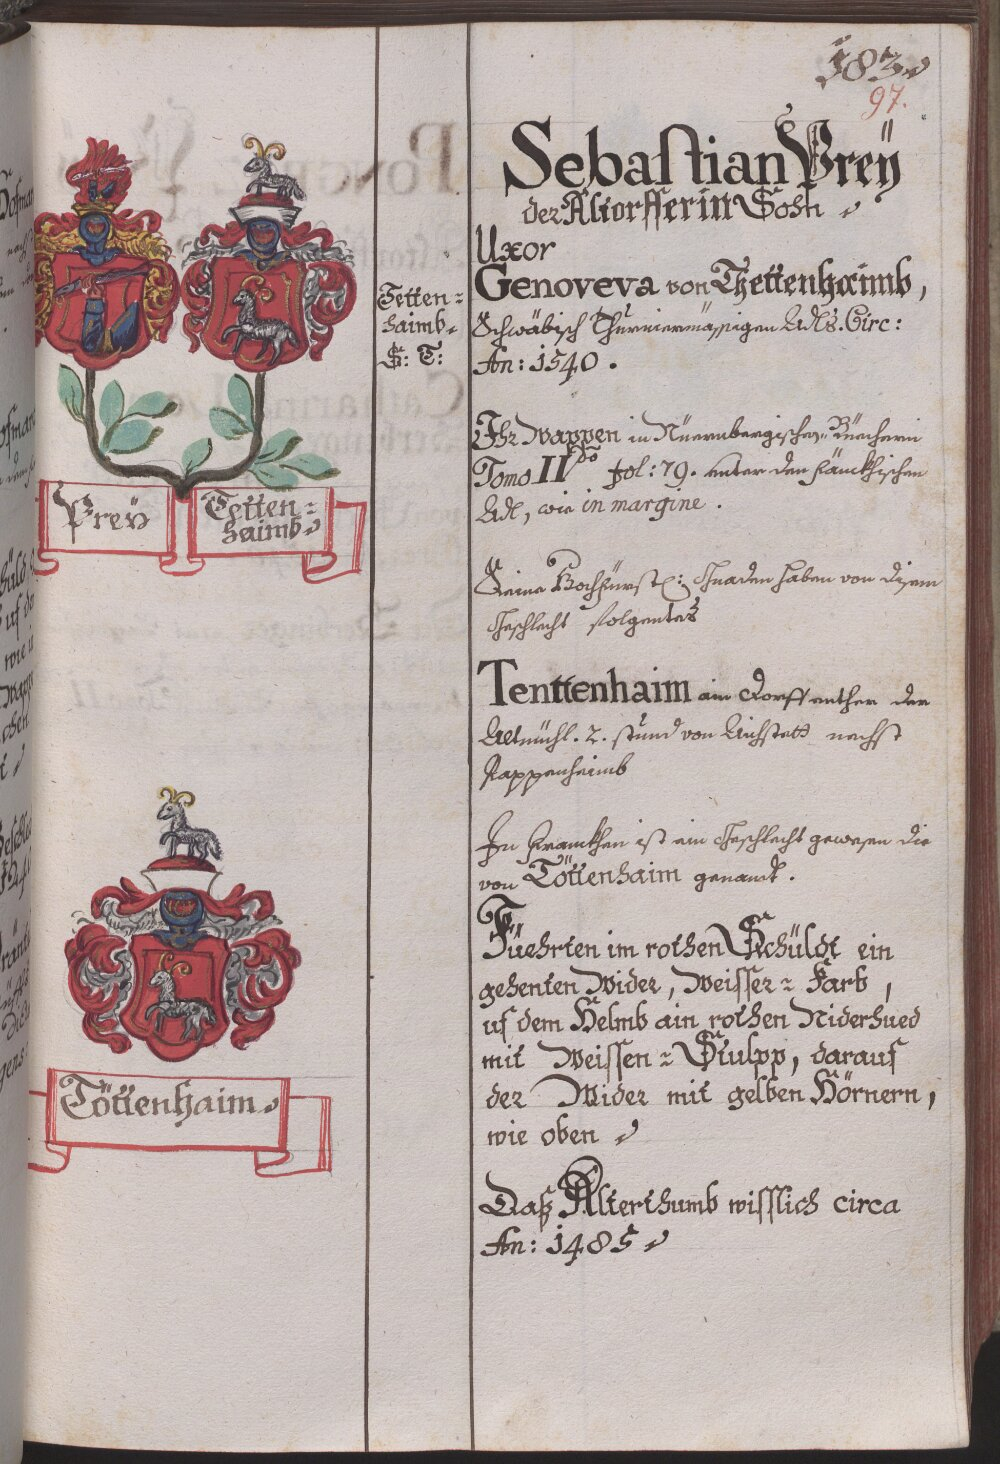 183
97.
Sebastian Preÿ
der Altorfferin Sohn
Uxor
Genoveva von Thettenhaimb,
Schwäbisch Thurniermässigen Adls. Circ:
An: 1540.
Tetten=
haimb
S: T:
Ihr Wappen in Nüernbergischen Büechern
Tomo II do fol: 79. unter den fränckhischen
Adl, wie in margine.
Preÿ
Tetten=
haimb
Seine Hochfürstl: Gnaden haben von disem
Geschlecht folgentes
Tenttenhaim ain Dorff unther der
Altmühl. 2. stund von Aichstett nechst
Pappenheimb
In Franckhen ist ein Geschlecht gewesen die
von Töttenhaim genandt.
Füehrten im rothen Schüldt ein
gehenten Wider, Weisser= Farb,
uf dem Helmb ain rothen Niderhued
mit Weissen= Stulpp, darauf
der Wider mit gelben Hörnern,
wie oben
Töttenhaim
Daß Alterthumb wisslich circa
An: 1485